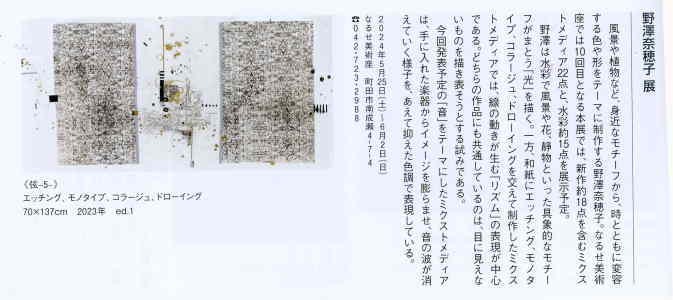 野澤奈穂子 展
風景や植物など、身近なモチーフから、時とともに変容
する色や形をテーマに制作する野澤奈穂子。なるせ美術
座では10回目となる本展では、新作約18点を含むミクス
トメディア22点と、水彩約15点を展示予定。
野澤は水彩で風景や花、静物といった具象的なモチー
フがまとう「光」を描く。一方、和紙にエッチング、モノタ
イプ、コラージュ、ドローイングを交えて制作したミクス
トメディアでは、線の動きが生む「リズム」の表現が中心
である。どちらの作品にも共通しているのは、目に見えな
いものを描き表そうとする試みである。
今回発表予定の「音」をテーマにしたミクストメディア
は、手に入れた楽器からイメージを膨らませ、音の波が消
えていく様子を、あえて抑えた色調で表現している。
2024年5月25日(土)―6月2日(日)
なるせ美術座 町田市南成瀬4-7-4
☎042-723-2988
《弦-5-》
エッチング、モノタイプ、コラージュ、ドローイング
70×137cm 2023年 ed.1